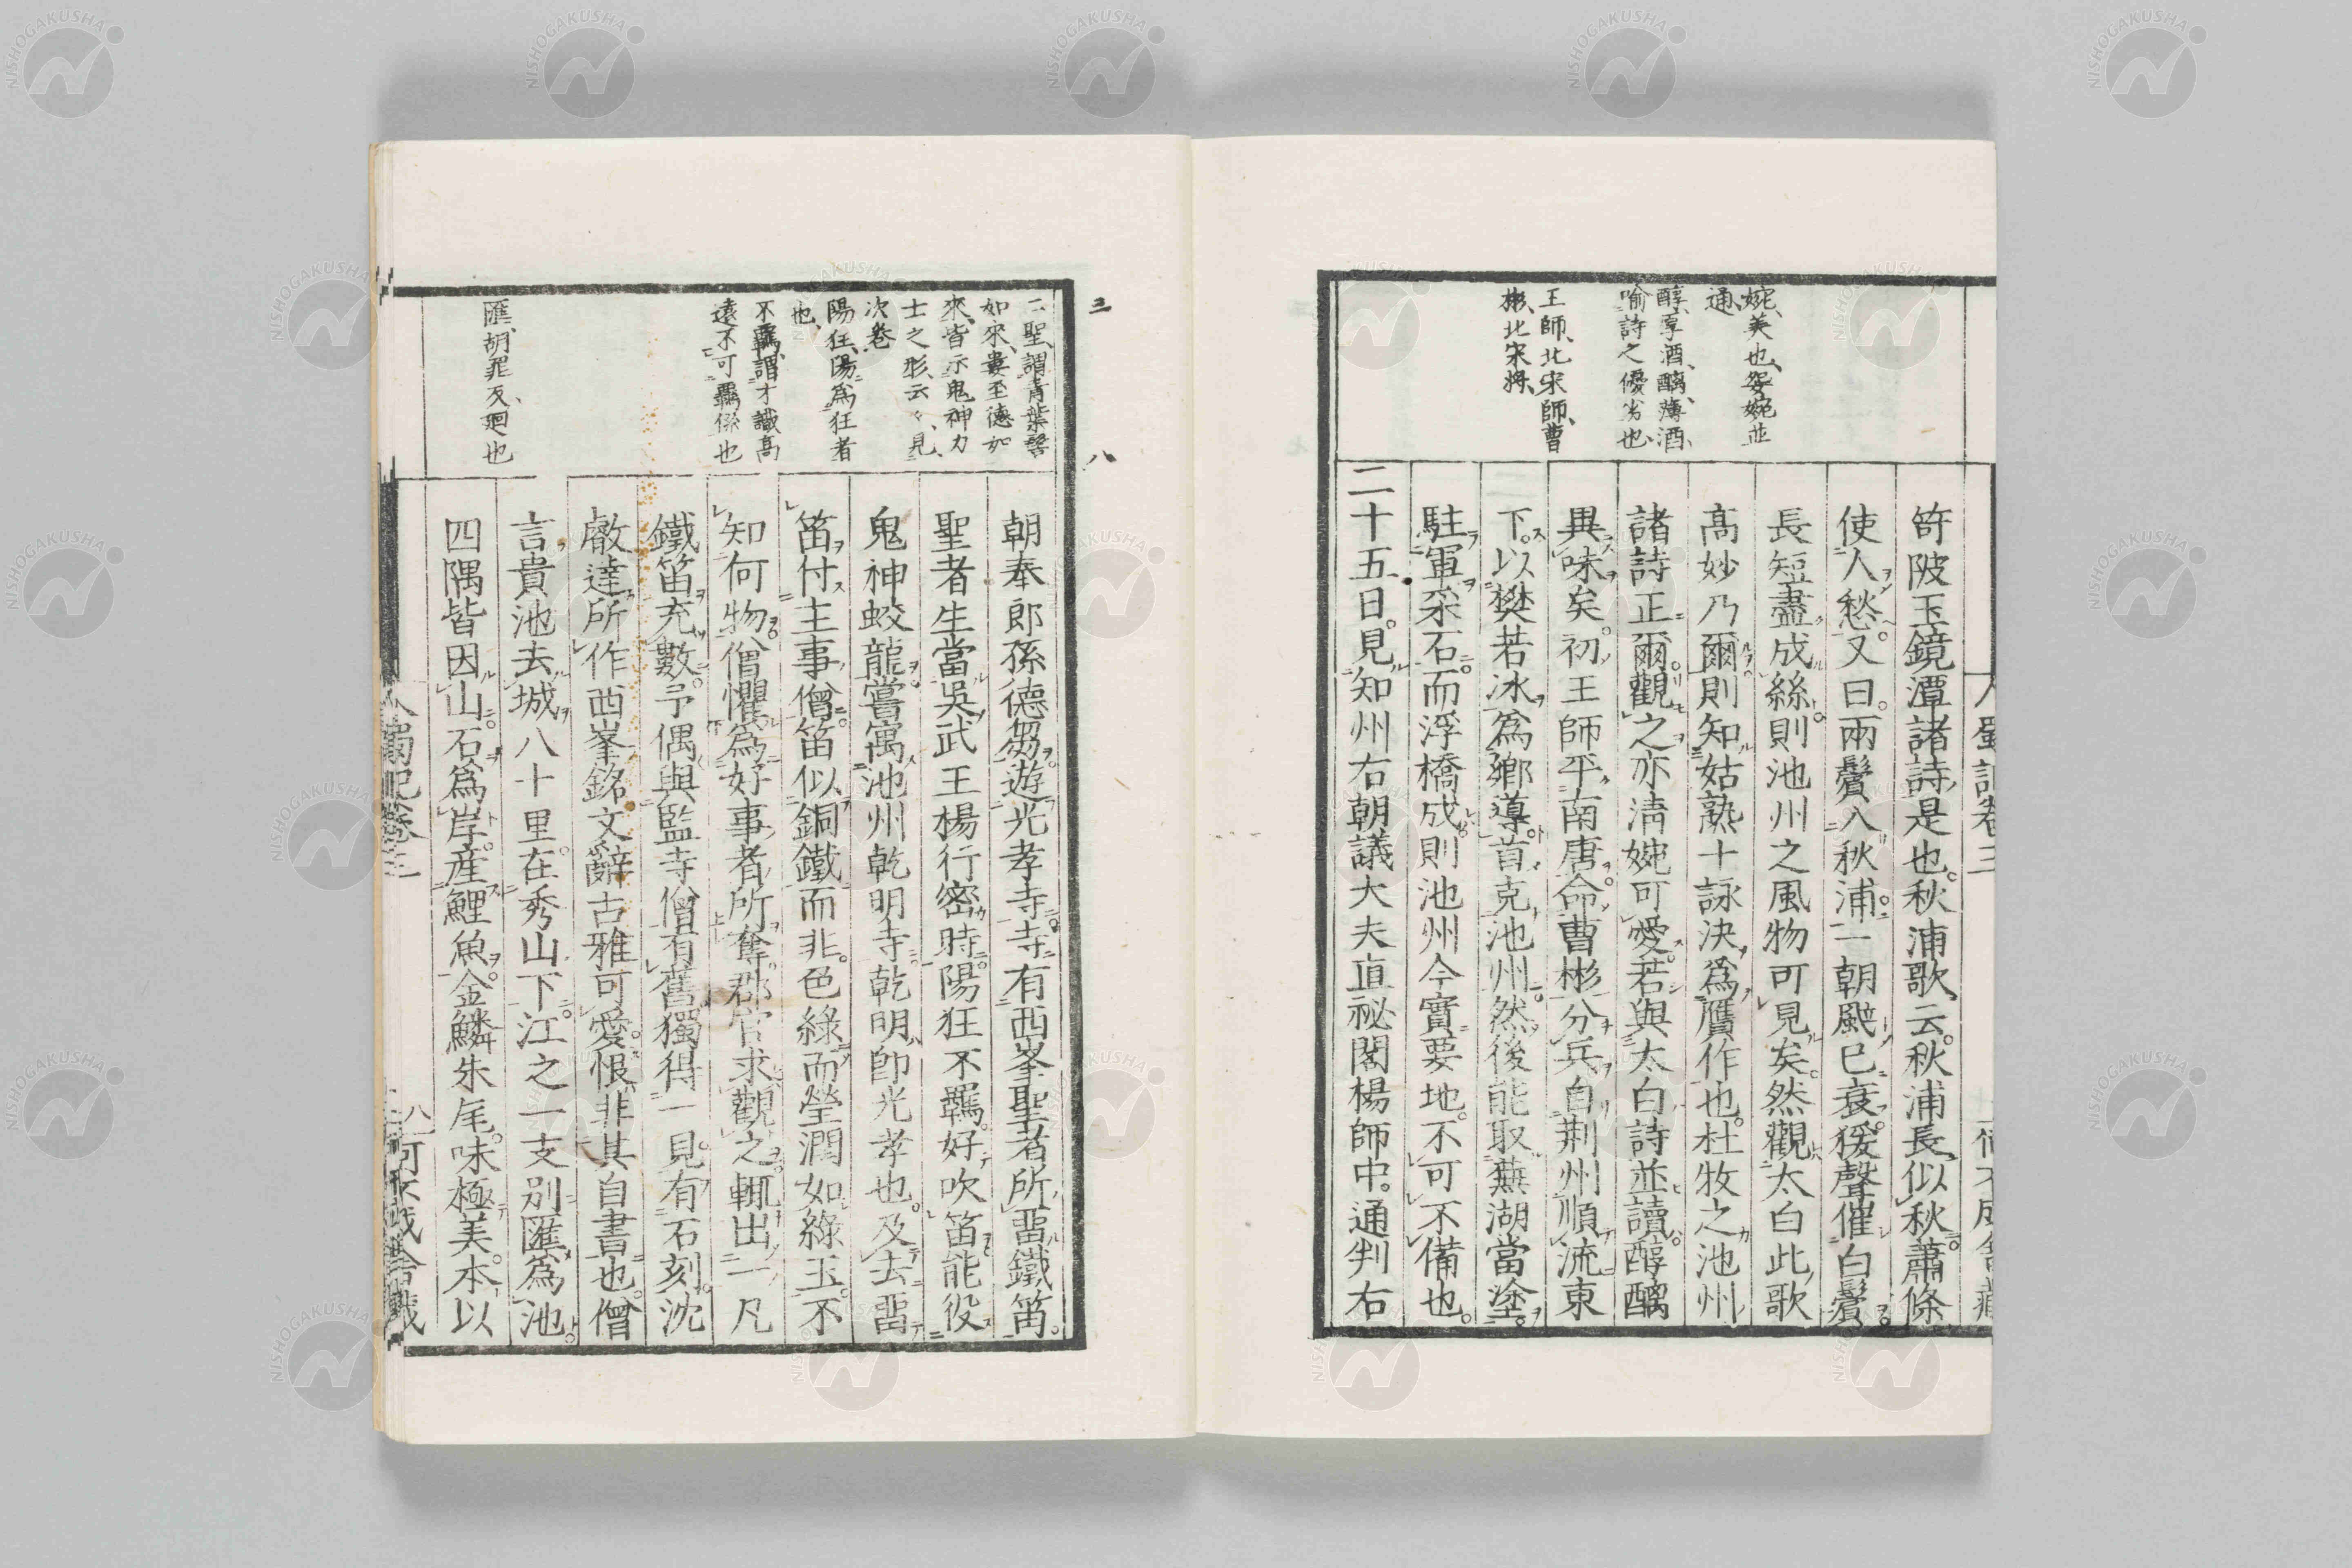 婉、美也、䛷婉並
通、
醇、厚酒、醨、薄酒、
喻詩之優劣也、
王師、北宋師、曹
彬、北宋将、
笴陂玉鏡潭諸詩是也。秋浦歌云。秋浦長似秋。蕭條
使人愁。又曰。兩鬢入秋浦。一朝颯已衰。猨聲催白鬢。
長短盡成絲。則池州之風物可見矣。然觀太白此歌
高妙乃爾。則知姑熟十詠決爲贋作也。杜牧之池州
諸詩正爾。觀之亦淸婉可愛。若與太白詩並讀。醇醨
異味矣。初王師平南唐。命曹彬分兵。自荆州順流東
下。以樊若冰爲鄕導。首克池州。然後能取蕪湖當塗。
駐軍采石。而浮橋成。則池州今實要地。不可不備也。
二十五日。見知州右朝議大夫直祕閣楊師中。通判右
蜀記卷三
三
八
二聖、謂青葉髻
如來、婁至德如
來、皆示鬼神力
士之形、云々、見
次卷
陽狂、陽爲狂者
也、
不羈、謂才識高
遠不可羈係也
匯、胡罪反、廻也
朝奉郎孫德芻。遊光孝寺。寺有西峯聖者所畱鐵笛。
聖者生當吳武王楊行密時。陽狂不羈。好吹笛。能役
鬼神蛟龍。嘗寓池州乾明寺。乾明卽光孝也。及去畱
笛付主事僧。笛似銅鐵而非。色綠而瑩潤如綠玉。不
知何物。僧懼爲好事者所奪。郡官求觀之。輒出一凡
鐵笛充數。予偶與監寺僧有舊。獨得一見。有石刻。沈
叡達所作西峯銘。文辭古雅可愛。恨非其自書也。僧
言貴池去城八十里。在秀山下。江之一支別匯爲池。
四隅皆因山石爲岸。産鯉魚。金鱗朱尾。味極美。本以
入蜀記卷三
八
何不成舍藏